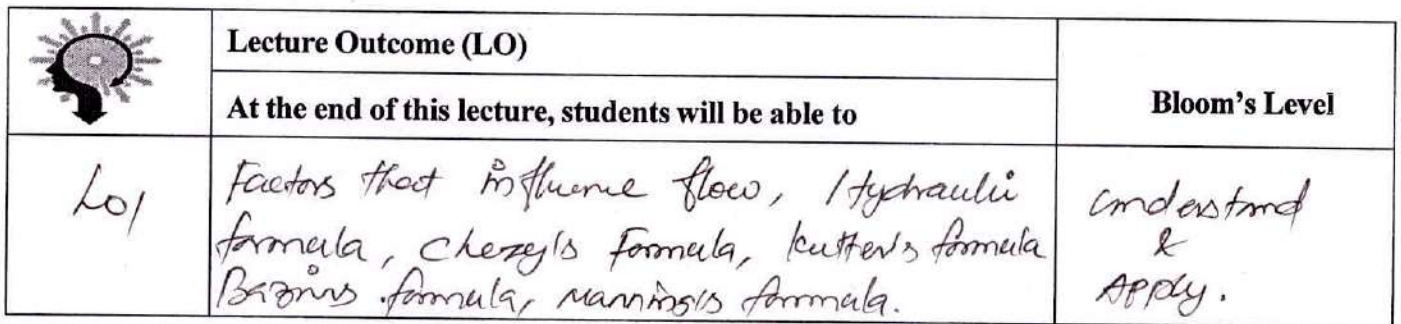 Lecture Outcome (LO)
At the end of this lecture, students will be able to
Bloom's Level
LO1
Factors that influence flow, Hydraulic
formula, Chezy's Formula, kutter's formula
Bazins formula, Manning's formula.
understand
&
Apply.